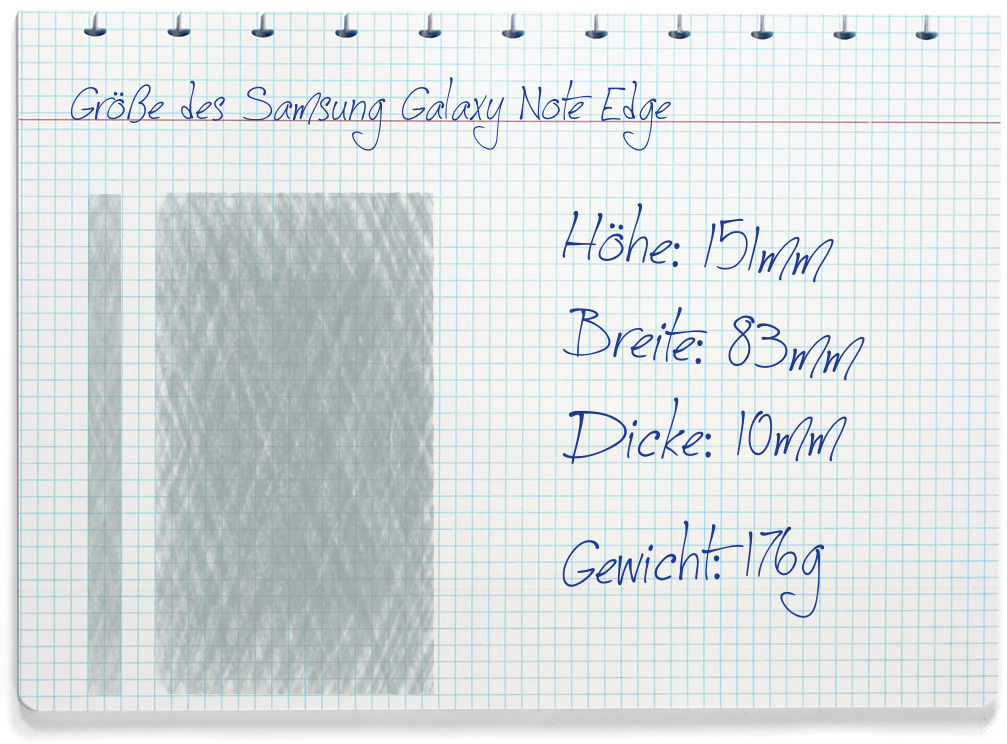 Größe des Samsung Galaxy Note Edge
Höhe: 151mm
Breite: 83mm
Dicke: 10mm
Gewicht: 176g